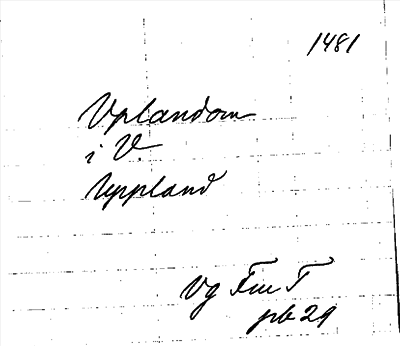 1481
Vplandom
i V.
Uppland
Vg FmT
pb 29